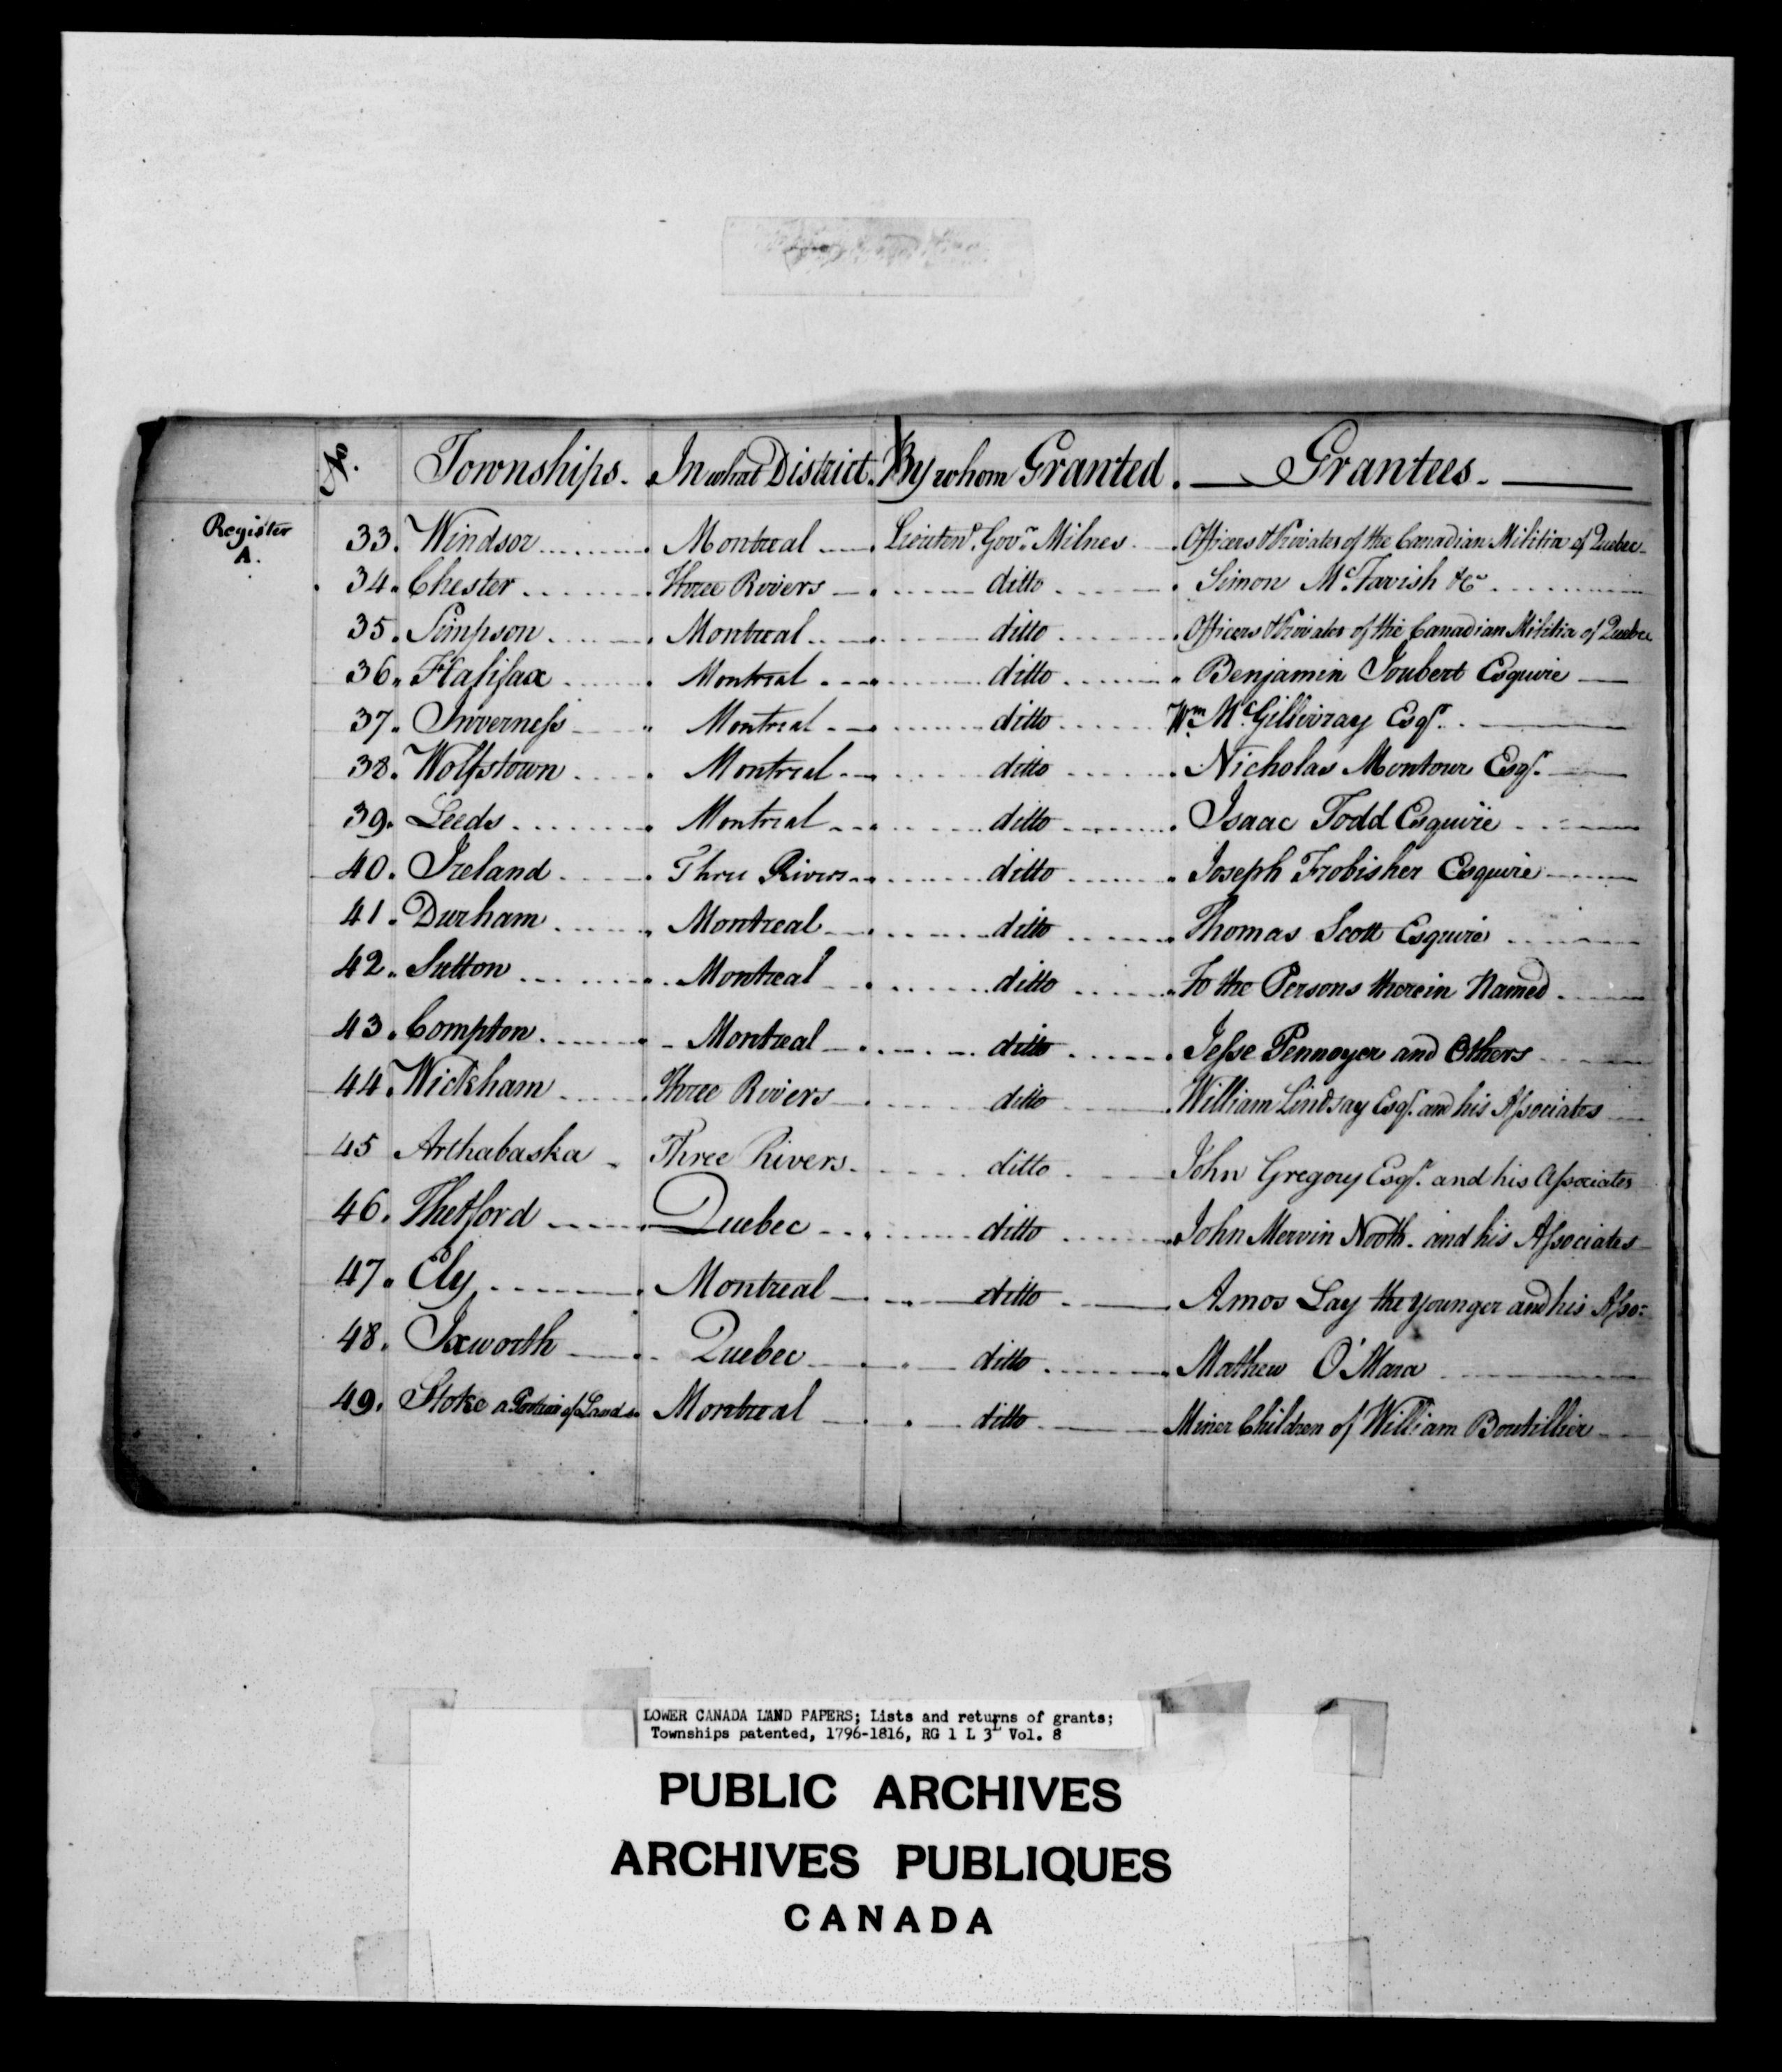 No. Townships. In what District. By whom Granted. Grantees.
Register
A.
33. Windsor Montreal Lieutent. Govr. Milnes Officers & Privates of the Canadian Militia of Quebec
34. Chester Three Rivers ditto Simon McTavish &c
35. Simpson Montreal ditto Officers & Privates of the Canadian Militia of Quebec
36. Halifax Montreal ditto Benjamin Joubert Esquire
37. Inverness Montreal ditto Wm McGillivray Esqr.
38. Wolfstown Montreal ditto Nicholas Montour Esqr.
39. Leeds Montreal ditto Isaac Todd Esquire
40. Ireland Three Rivers ditto Joseph Frobisher Esquire
41. Durham Montreal ditto Thomas Scott Esquire
42. Sutton Montreal ditto To the Persons therein Named
43. Compton Montreal ditto Jesse Pennoyer and Others
44. Wickham Three Rivers ditto William Lindsay Esqr. and his Associates
45 Arthabaska Three Rivers ditto John Gregory Esqr. and his Associates
46. Thetford Quebec ditto John Mervin Nooth and his Associates
47. Ely Montreal ditto Amos Lay the younger and his Asso:
48. Ixworth Quebec ditto Mathew O'Mara
49. Stoke a Portion of Land Montreal ditto Minor Children of William Boutillier
LOWER CANADA LAND PAPERS; Lists and returns of grants;
Townships patented, 1796-1816, RG 1 L 3L Vol. 8
PUBLIC ARCHIVES
ARCHIVES PUBLIQUES
CANADA